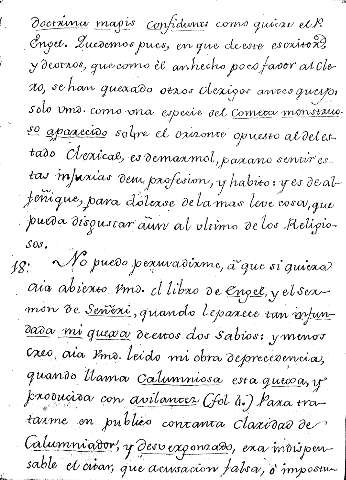 doctrina magis confidunt como quiere el P.
Engel. Quedemos pues, en que de este escritor,
y deotros, que como él anhecho poco favor al Cle-
ro, se han quexado otros Clerigos antes queyo; y
solo Vmd. como una especie del Cometa monstruo-
so aparecido sobre el orizonte opuesto al del es-
tado Clerical, es demarmol, parano sentir es-
tas injurias desu profesion, y habito: y es de al-
feñique, para dolerse de la mas leve cosa, que
pueda disgustar aùn al ultimo de los Religio-
sos.
18. No puedo persuadirme, à que si quiera
aia abierto Vmd. el libro de Engel, y el Ser-
mon de Señeri, quando leparece tan infun-
dada mi quexa deestos dos Sabios: y menos
creo, aia Vmd. leido mi obra deprecedencia,
quando llama Calumniosa esta quexa, y
producida con avilantez (fol. 4.) Para tra-
tarme en publico contanta Claridad de
Calumniador, y desvergonzado, era indispen-
sable el citar, que acusacion falsa, ò impostu-